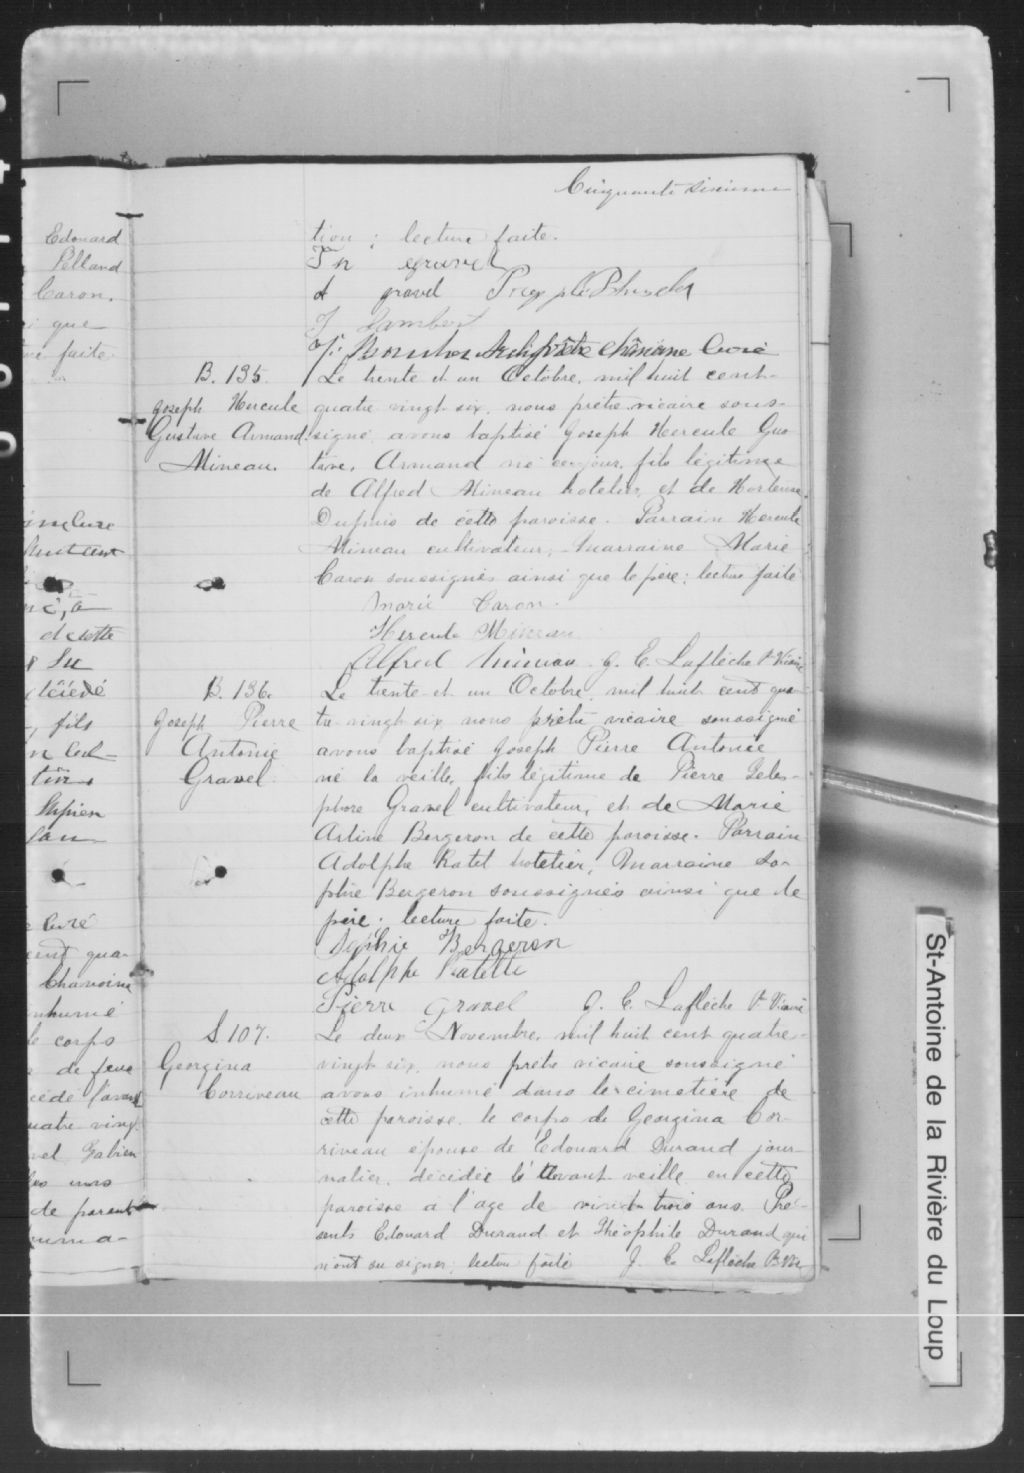 Cinquante sixieme
Edouard
Pelland
Caron.
que
faite
tion ; lecture faite.
gravel
A gravel
J Lambert
chanoine Curé
B. 135.
Joseph Hercule
Gustave Armand
Mineau.
Le trente et un Octobre, mil huit cent-
quatre vingt six, nous prêtre vicaire sous-
signé avons baptisé Joseph Hercule Gus
tave, Armand né ce jour, fils légitime
de Alfred Mineau hotelier, et de Hortense
Dupuis de cette paroisse. Parrain Hercule
Mineau cultivateur, Marraine Marie
Caron soussignés ainsi que le père; lecture faite
Marie Caron.
Hercule Mineau
Alfred Mineau J. E. Laflèche Ptr Vicaire
B. 136.
Joseph Pierre
Antonie
Gravel
Le trente et un Octobre, mil huit cent qua-
tre-vingt six nous prêtre vicaire soussigné
avons baptisé Joseph Pierre Antonie
né la veille, fils légitime de Pierre Teles-
phore Gravel cultivateur, et de Marie
Arline Bergeron de cette paroisse. Parrain
Adolphe Ratel hotelier, Marraine So-
phie Bergeron soussignés ainsi que le
père; lecture faite.
Sophie Bergeron
Adolphe Ratelle
Pierre Gravel J. E. Laflèche Ptr Vicaire
S 107.
Georgina
Corriveau
Le deux Novembre, mil huit cent quatre-
vingt six, nous prêtre vicaire soussigné
avons inhumé dans le cimetière de
cette paroisse, le corps de Georgina Cor-
riveau épouse de Edouard Durand jour-
nalier, décédée l'avant veille en cette
paroisse a l'age de vingt trois ans. Pré-
sents Edouard Durand et Théophile Durand qui
n'ont su signer; lecture faite J. E. Laflèche
de cette
fils
curé
Chanoine
inhumé
le corps
de feue
cédé l'avant
quatre vingt
Gabien
de parents
St-Antoine de la Rivière du Loup